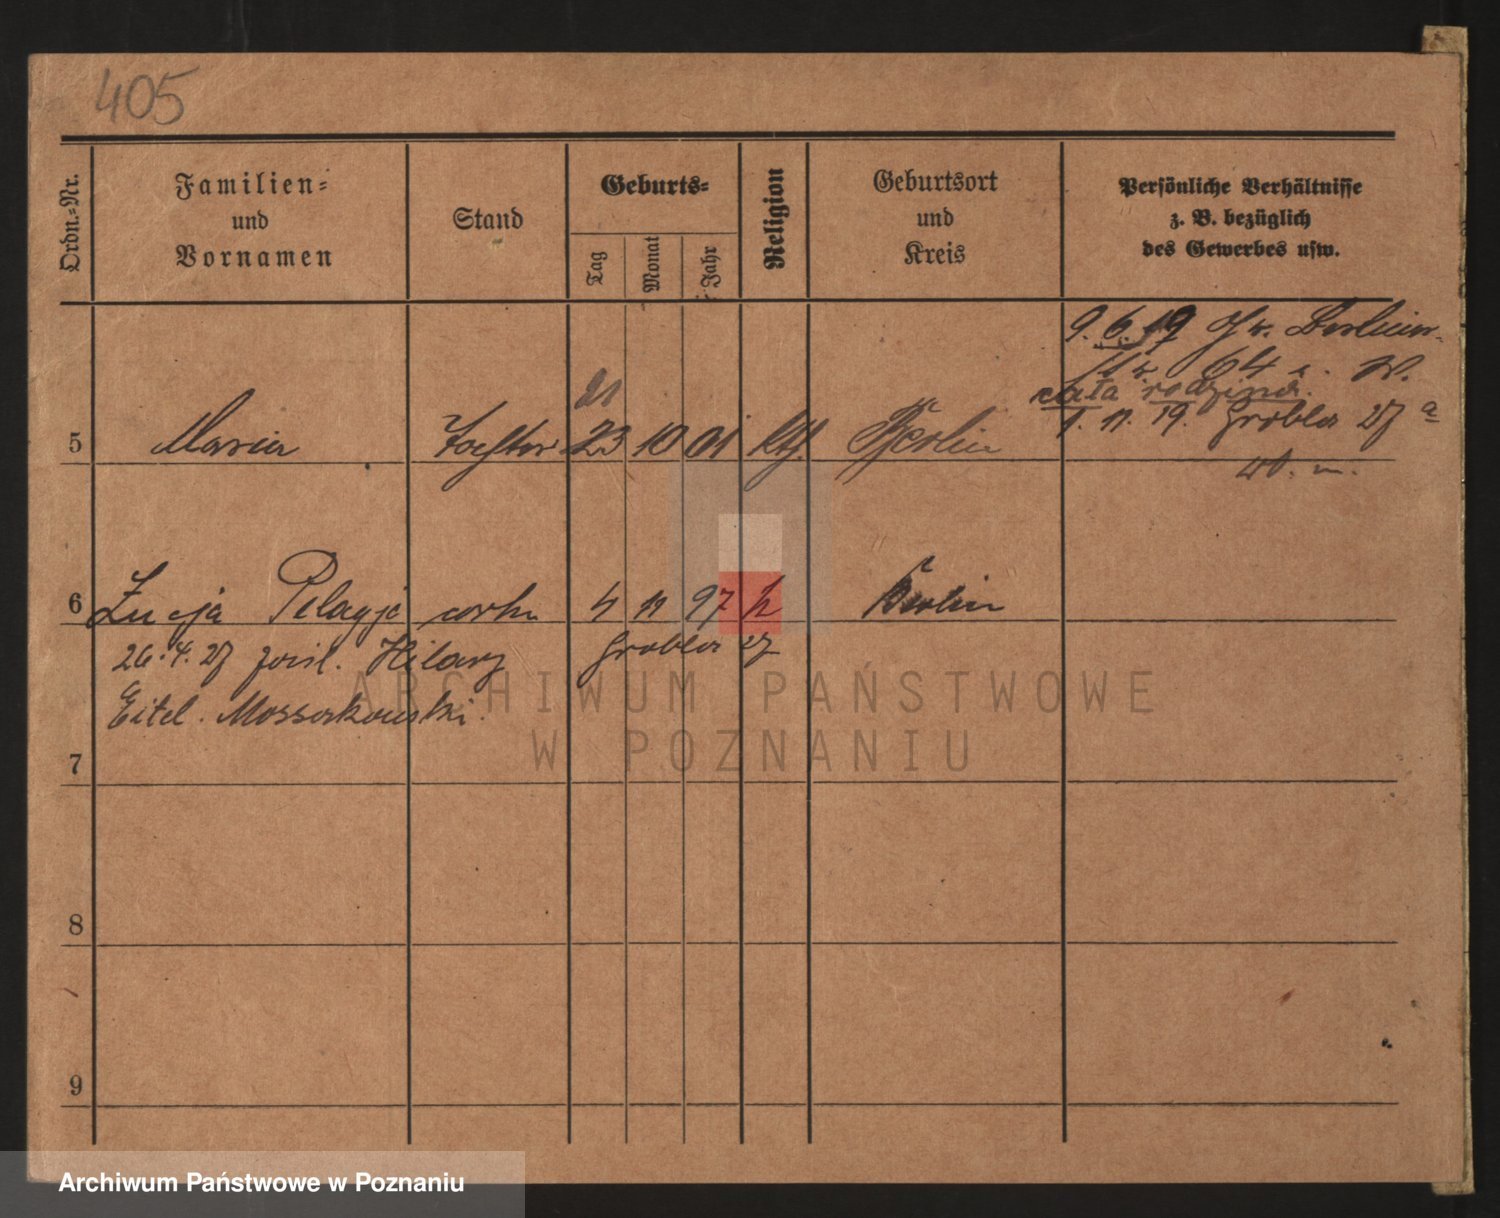 405
Ordn.-Nr.
Familien-
und
Vornamen
Stand
Geburts-
Tag
Monat
Jahr
Religion
Geburtsort
und
Kreis
Persönliche Verhältnisse
z. B. bezüglich
des Gewerbes usw.
9. 6. 19
64
W.
cała rodzina
1. 11. 19. Grobla 27 a
21
5 Maria Tochter 23 10 01 kth. Berlin
6 Łucja Pelagja córka 4 11 97 k Berlin
26.4.27 Hilary Grobla 27
Eitel. Mossakowski.
7
8
9
ARCHIWUM PAŃSTWOWE
W POZNANIU
Archiwum Państwowe w Poznaniu